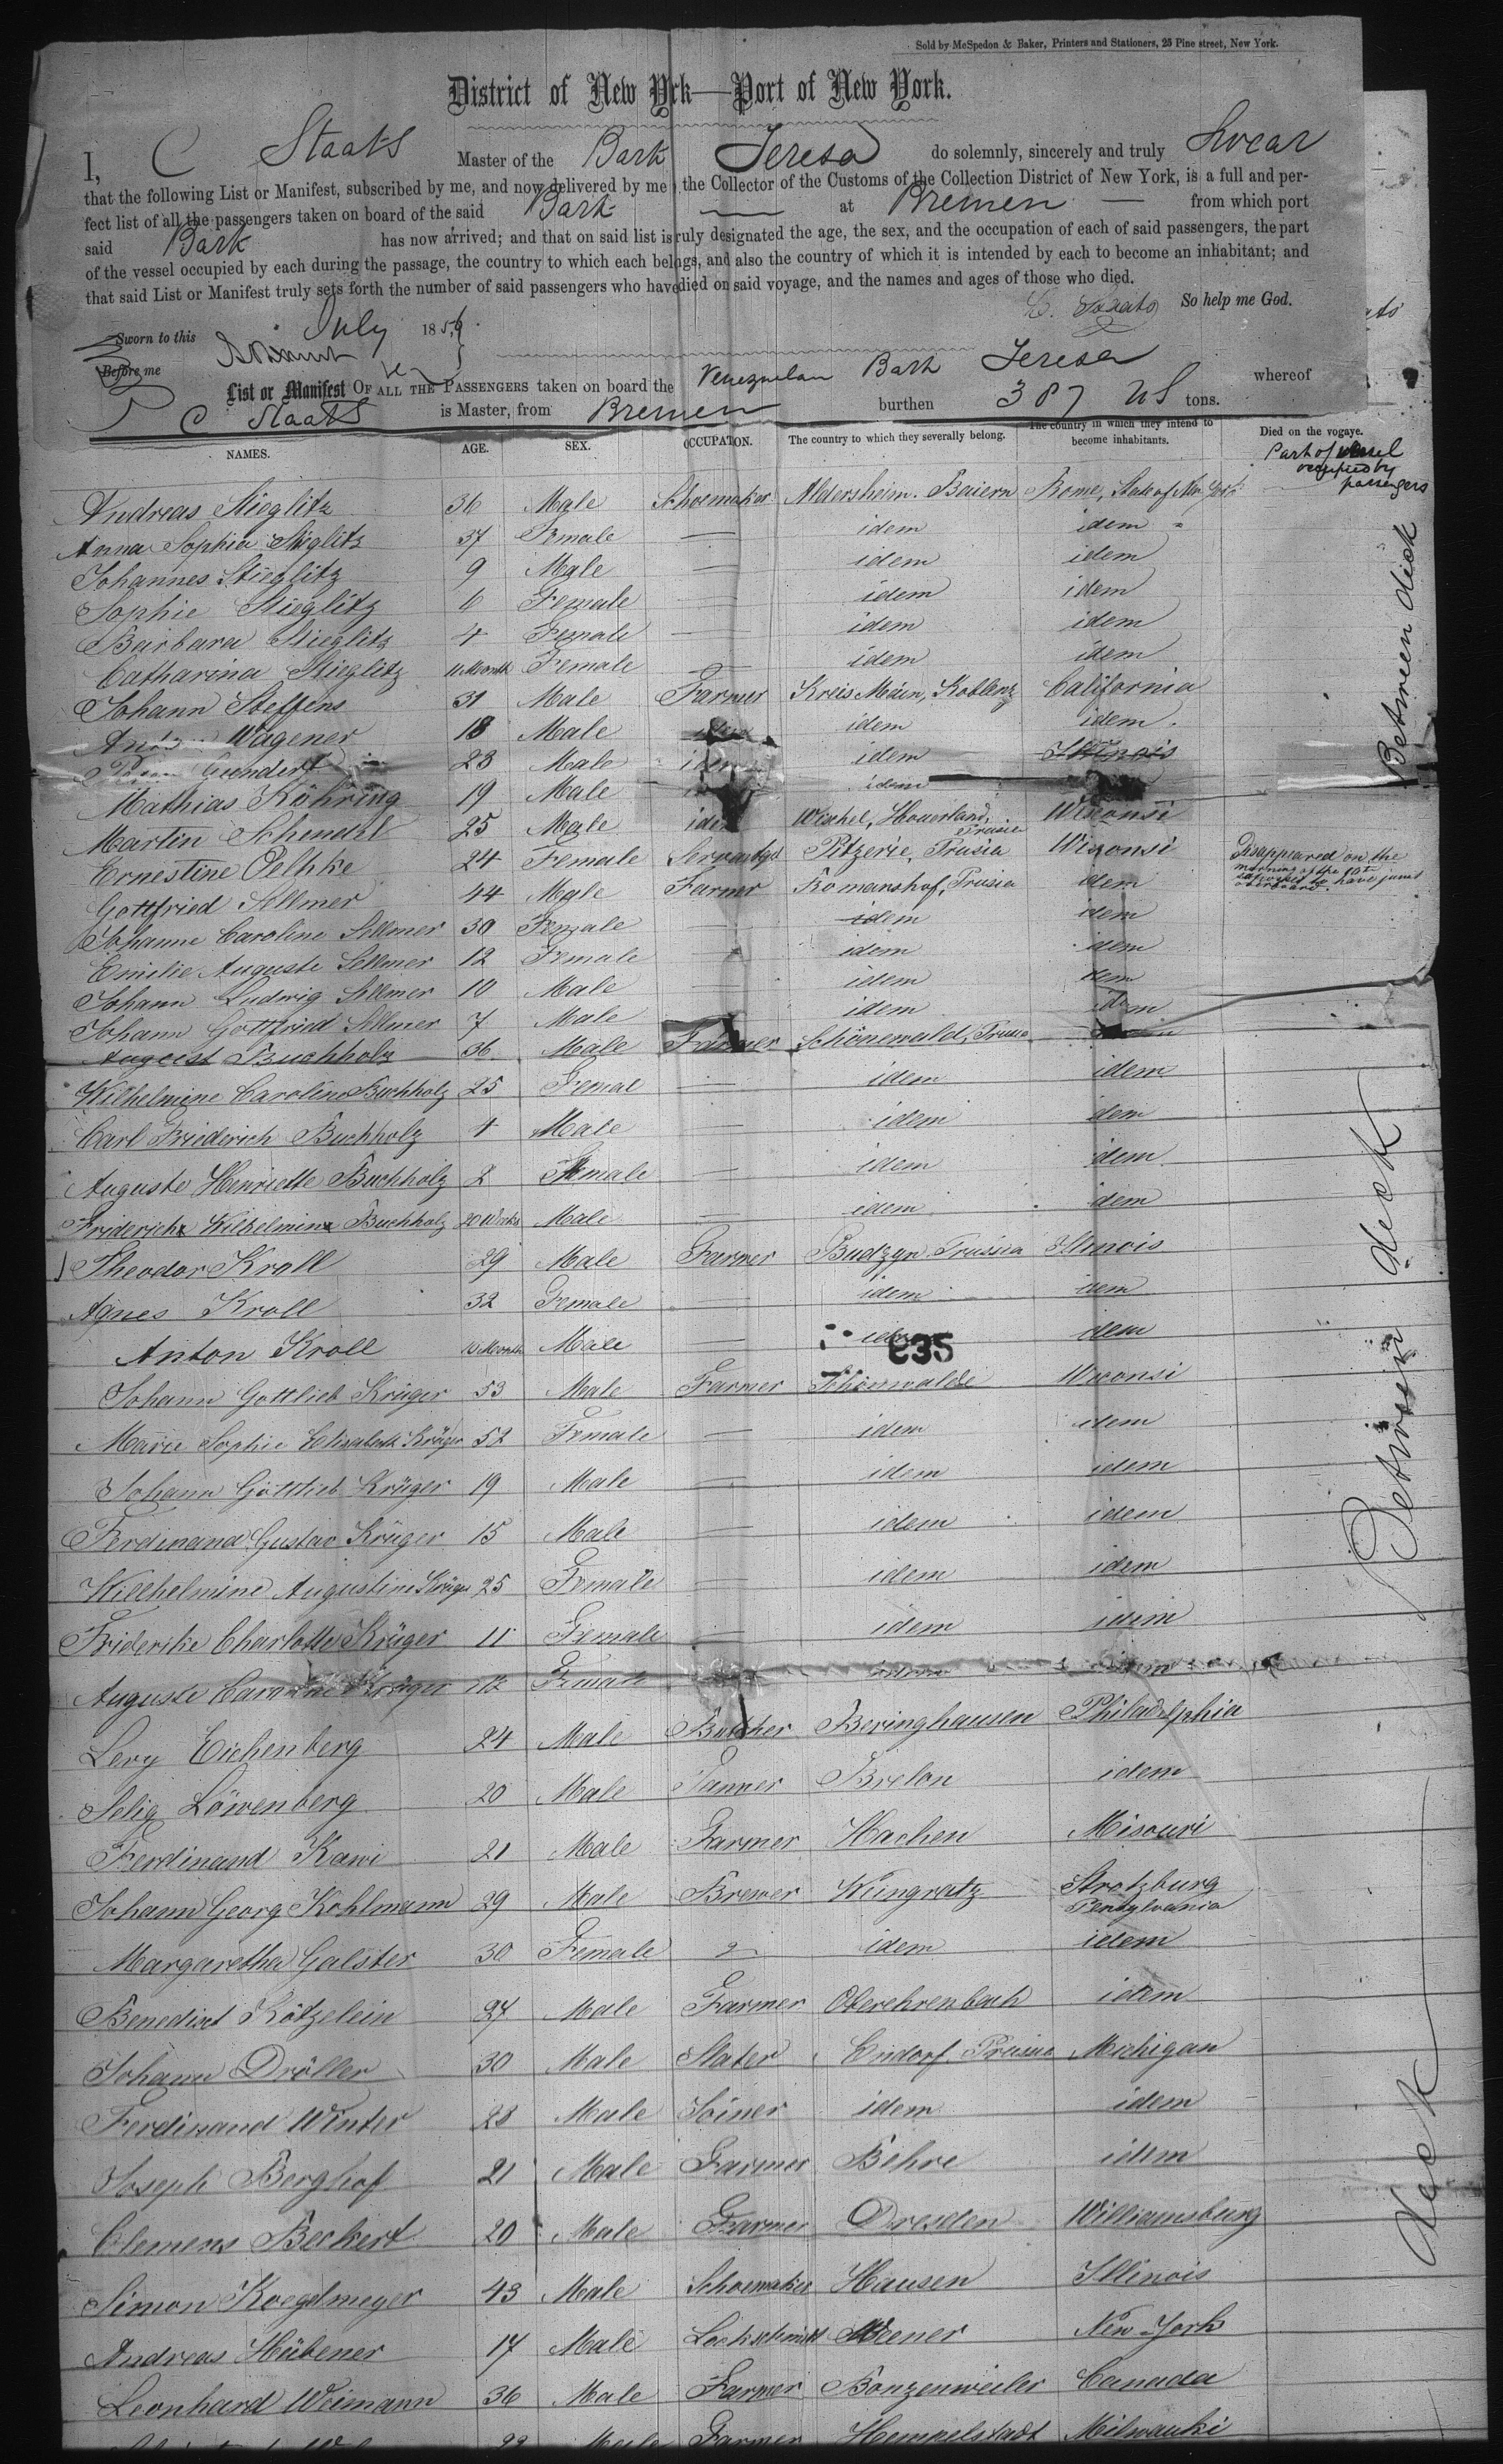 Sold by McSpedon & Baker, Printers and Stationers, 25 Pine street, New York.
District of New York—Port of New York.
I, C Staats Master of the Bark Teresa do solemnly, sincerely and truly Swear
that the following List or Manifest, subscribed by me, and now delivered by me the Collector of the Customs of the Collection District of New York, is a full and per-
fect list of all the passengers taken on board of the said Bark — at Bremen — from which port
said Bark has now arrived; and that on said list is ruly designated the age, the sex, and the occupation of each of said passengers, the part
of the vessel occupied by each during the passage, the country to which each belongs, and also the country of which it is intended by each to become an inhabitant; and
that said List or Manifest truly sets forth the number of said passengers who have died on said voyage, and the names and ages of those who died.
C. Staats So help me God.
Sworn to this July 1856
Before me
List or Manifest OF ALL THE PASSENGERS taken on board the Venezuelan Bark Teresa whereof
C Staats is Master, from Bremen burthen 387 US tons.
NAMES. AGE. SEX. OCCUPATON. The country to which they severally belong. The country in which they intend to become inhabitants. Died on the vogaye.
Part of vessel occupied by passengers
Andreas Stieglitz 36 Male Schoemaker Aldersheim. Baiern Rome, State of New York
Anna Sophia Stieglitz 37 Female — idem idem
Johannes Stieglitz 9 Male — idem idem
Sophie Stieglitz 6 Female — idem idem
Barbara Stieglitz 4 Female — idem idem
Catharina Stieglitz 11 Month Female — idem idem
Johann Steffens 31 Male Farmer Kreis Maien, Koblenz California
Wagener 18 Male idem idem idem.
Gundert 28 Male idem idem Illinois
Mathias Röhring 19 Male idem
Martin Schendel 25 Male idem Prusia Wisconsi
Ernestine Oelhke 24 Female Pitzerie, Prusia Wisonsi
Disappeared on the morning of the 10th supposed to have jumt overboard.
Gottfried Sellmer 44 Male Farmer Romanshof, Prusia idem
Johanne Caroline Sellmer 30 Female — idem idem
Emilie Auguste Sellmer 12 Female — idem idem
Johann Ludwig Sellmer 10 Male — idem idem
Johann Gottfried Sellmer 7 Male idem idem
August Buchholz 36 Male Farmer Schönewald, Prusia
Wilhelmine Caroline Buchholz 25 Femal — idem idem
Carl Friderich Buchholz 4 Male — idem idem
Auguste Henriette Buchholz 2 Female — idem idem
Friderich Wilhelmina Buchholz 20 Weeks Male — idem idem
Theodor Kroll 29 Male Farmer Budzyn Prusia Illinois
Agnes Kroll 32 Female — idem idem
Anton Kroll 10 Month Male — idem idem
835
Johann Gottlieb Krüger 53 Male Farmer Schönwalde Wiconsi
Marie Sophie Elisabeth Krüger 52 Female — idem idem
Johann Gottlieb Krüger 19 Male — idem idem
Ferdinand Gustav Krüger 15 Male — idem idem
Willhelmine Augustine Krüger 25 Female — idem idem
Friderike Charlotte Krüger 11 Female — idem idem
Auguste Caroline Krüger Female idem idem
Levy Eichenberg 24 Male Butcher Beringhausen Philadelphia
Selig Löwenberg 20 Male Tanner Brelon idem
Ferdinand Kawi 21 Male Farmer Hachen Misouri
Johann Georg Kohlmann 29 Male Brewer Weingratz Strotzburg Pensylvania
Margaretha Galster 30 Female — idem idem
Benedict Kötzelein 27 Male Farmer Oberehrenbach idem
Johann Dröller 30 Male Slater Endorf Prusia Michigan
Ferdinand Winter 28 Male Joiner idem idem
Joseph Berghof 21 Male Farmer Behre idem
Clemens Beckert 20 Male Farmer Dresden Williamsburg
Simon Koegelmeyer 43 Male Schoemaker Hausen Illinois
Andreas Hübener 17 Male Lockschmidt Wiener New York
Leonhard Weimann 36 Male Farmer Bonzenweiler Canada
Male Farmer Hempelstadt Milwauki
Between dick
Between deck
deck